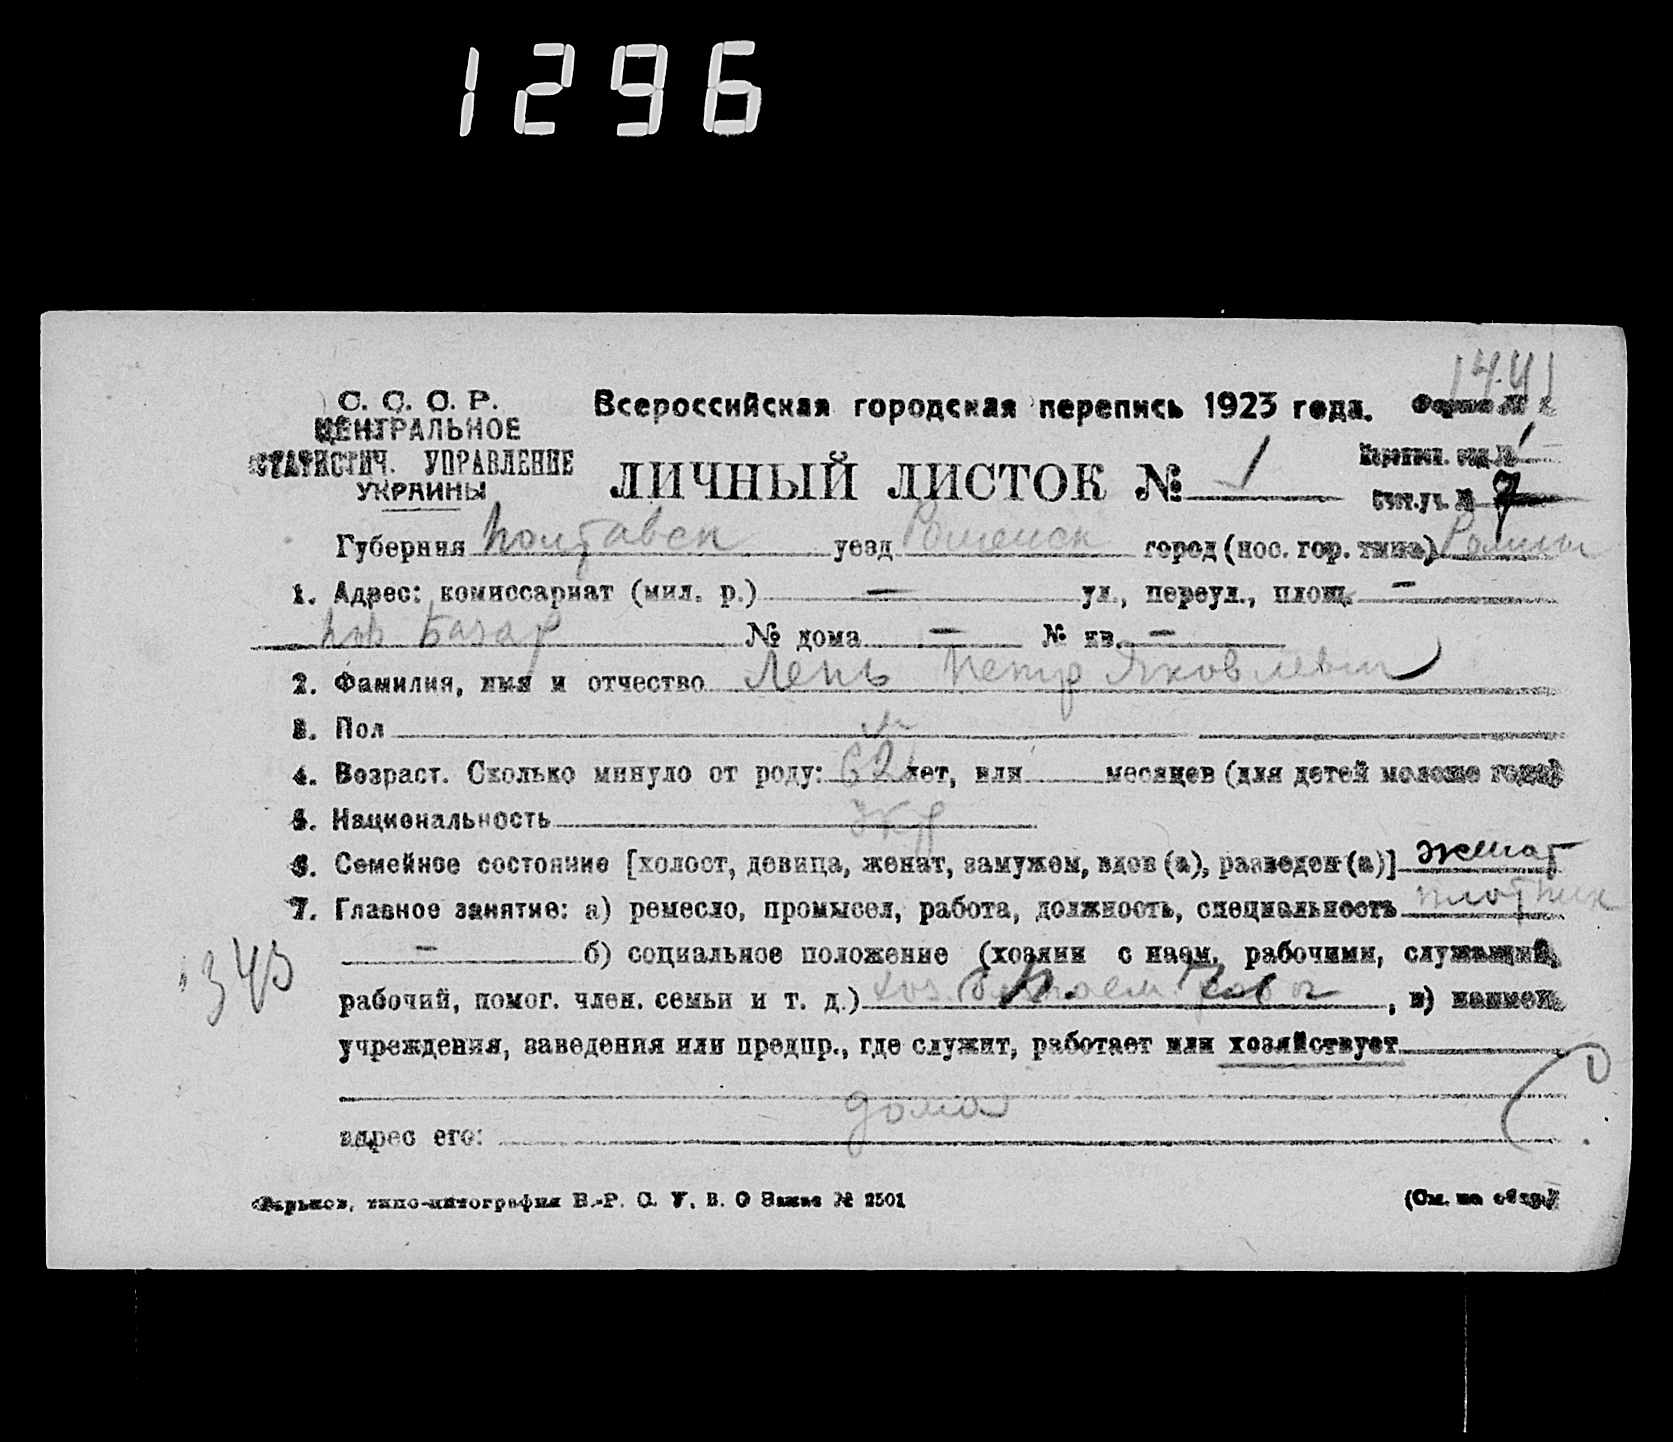 1296
1441
С. С. С. Р.
ЦЕНТРАЛЬНОЕ
СТАТИСТИЧ. УПРАВЛЕНИЕ
УКРАИНЫ
Всероссийская городская перепись 1923 года. Форма №
ЛИЧНЫЙ ЛИСТОК № 1
Переписн. отд. № 1
Счет. уч. № 7
Губерния Полтавск уезд Роменск город (пос. гор. типа) Ромны
1. Адрес: комиссариат (мил. р.) — ул., переул., площ. —
Базар № дома — № кв. —
2. Фамилия, имя и отчество Лепь Петр Яковлевич
3. Пол м
4. Возраст. Сколько минуло от роду: 62 лет, или месяцев (для детей моложе года)
5. Национальность Укр
6. Семейное состояние [холост, девица, женат, замужем, вдов (а), разведен (а)] женат
7. Главное занятие: а) ремесло, промысел, работа, должность, специальность плотник
— б) социальное положение (хозяин с наем. рабочими, служащий,
343
рабочий, помог. член. семьи и т. д.) хоз , в) наимен.
учреждения, заведения или предпр., где служит, работает или хозяйствует
дома
адрес его:
Харьков, типо-литография В.-Р. С. У. В. О Заказ № 2501
(См. на обор.)